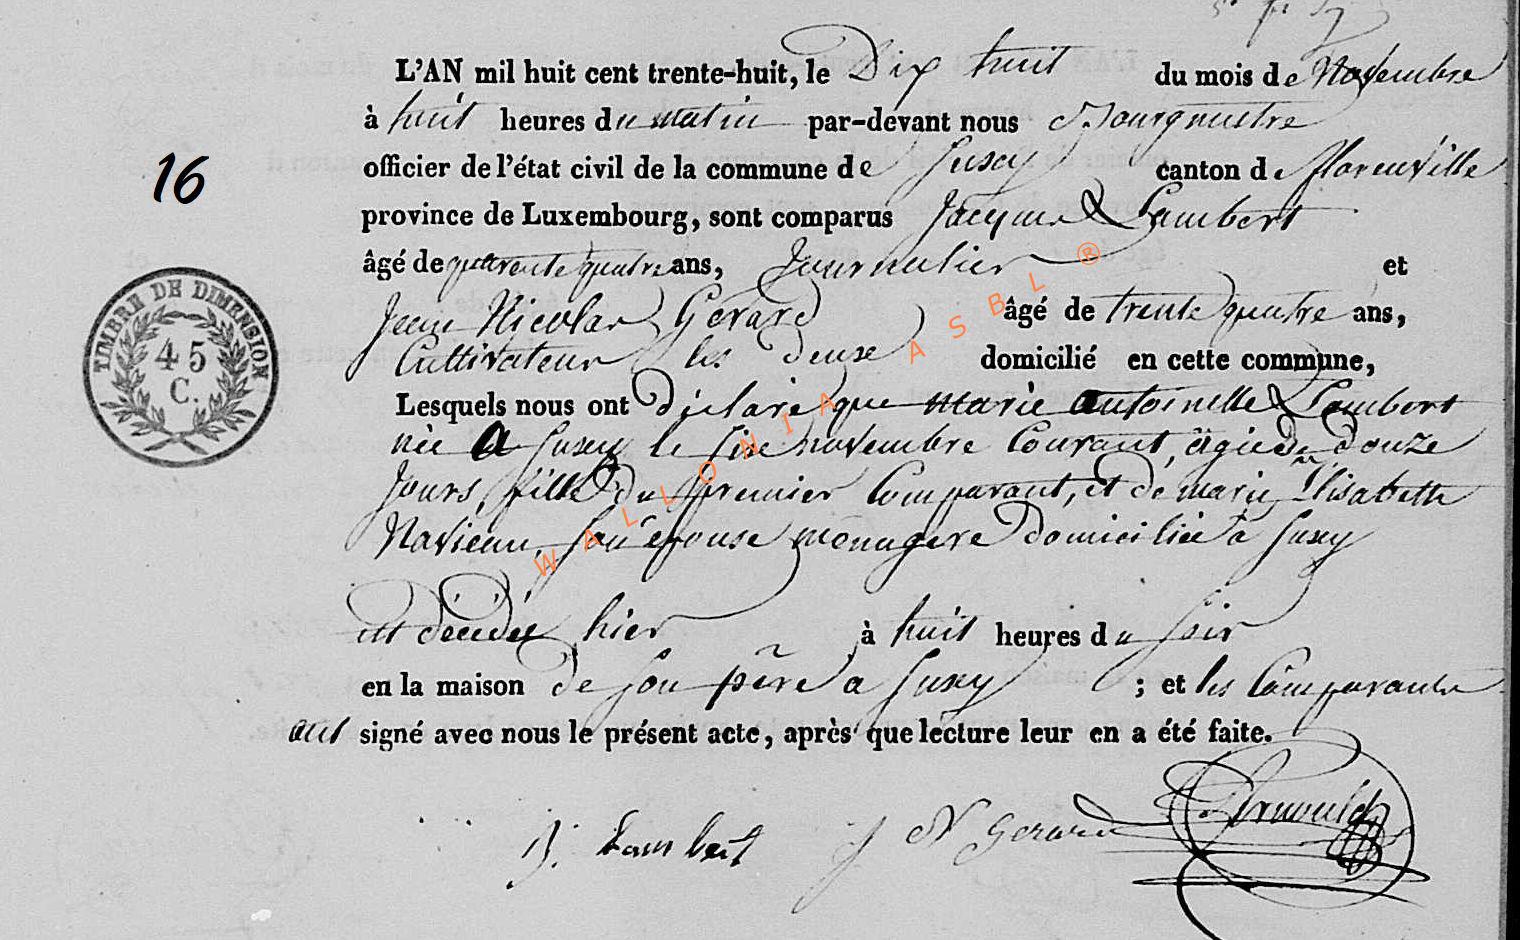 16
TIMBRE DE DIMENSION
45
C.
L'AN mil huit cent trente-huit, le Dix huit du mois de Novembre
à huit heures du matin par-devant nous Bourgmestre
officier de l'état civil de la commune de Suxy canton de florenville
province de Luxembourg, sont comparus Jacques Lambert
âgé de quarente quatre ans, Journalier et
Jean Nicolas Gérard âgé de trente quatre ans,
Cultivateur les deux domicilié en cette commune,
Lesquels nous ont déclaré que marie antoinette Lambert
née a Suxy le six novembre Courant, agée de douze
Jours fille du premier Comparant, et de marie Elisabeth
Navieau, son épouse ménagere domiciliée a Suxy
est décédée hier à huit heures du soir
en la maison de son père a Suxy ; et les Comparants
ont signé avec nous le présent acte, après que lecture leur en a été faite.
J. Lambert J N Gerard
WALLONIA ASBL ®